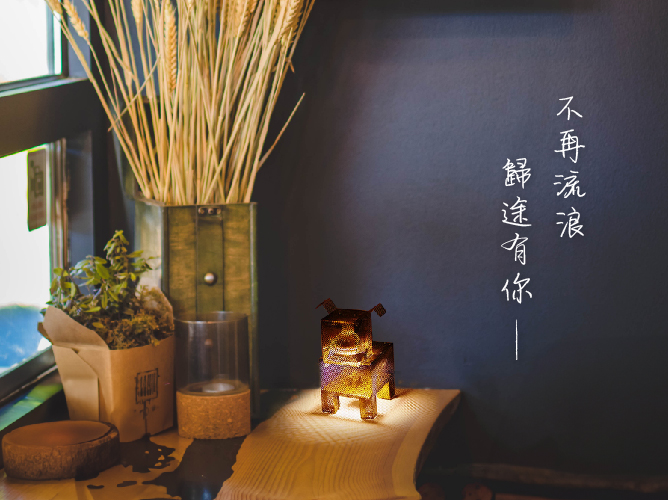 不再流浪
歸途有你—